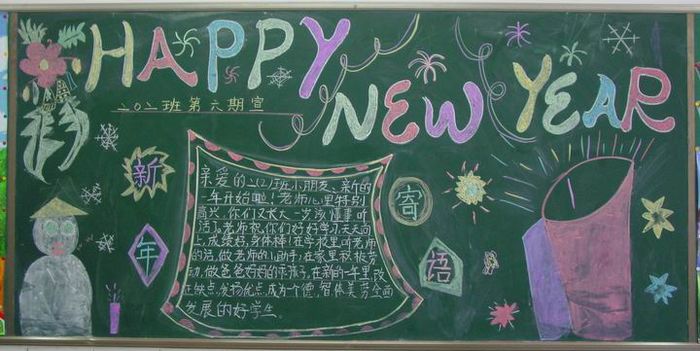 HAPPY
NEW YEAR
202班第六期宣
新年
寄语
亲爱的202班小朋友、新的
一年开始啦!老师心里特别
高兴,你们又长大一岁该懂事听
话了。老师祝你们好好学习,天天向
上,成绩好,身体棒!在学校里听老师
的话,做老师的小助手;在家里积极劳
动,做爸爸妈妈的乖孩子,在新的一年里改
正缺点,发扬优点,成为一个德,智体美劳全面
发展的好学生。